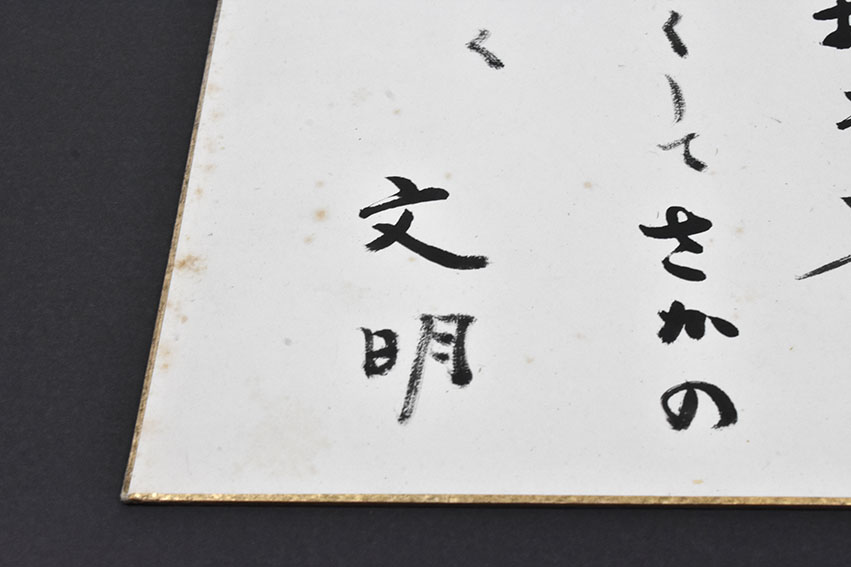 くしてさかの
く
文明